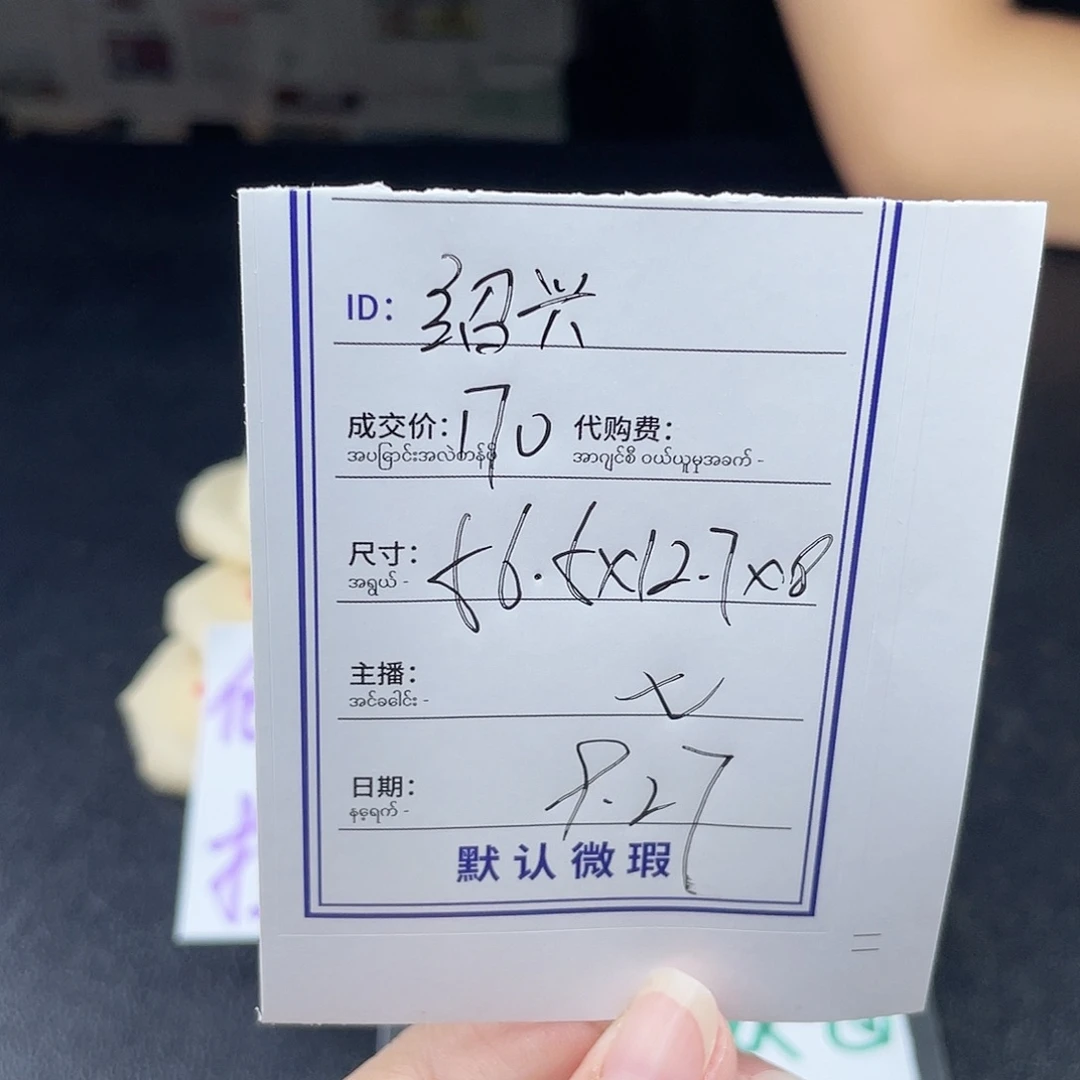 ID: 绍兴
成交价: 170 代购费:
အပြောင်းအလဲတန်ဖိုး အာဂျင်စီ ဝယ်ယူမှုအခက် -
尺寸: 56.5x12.7x8
အရွယ် -
主播:
အင်ခေါင်း -
日期: 9.27
နေ့ရက် -
默认微瑕